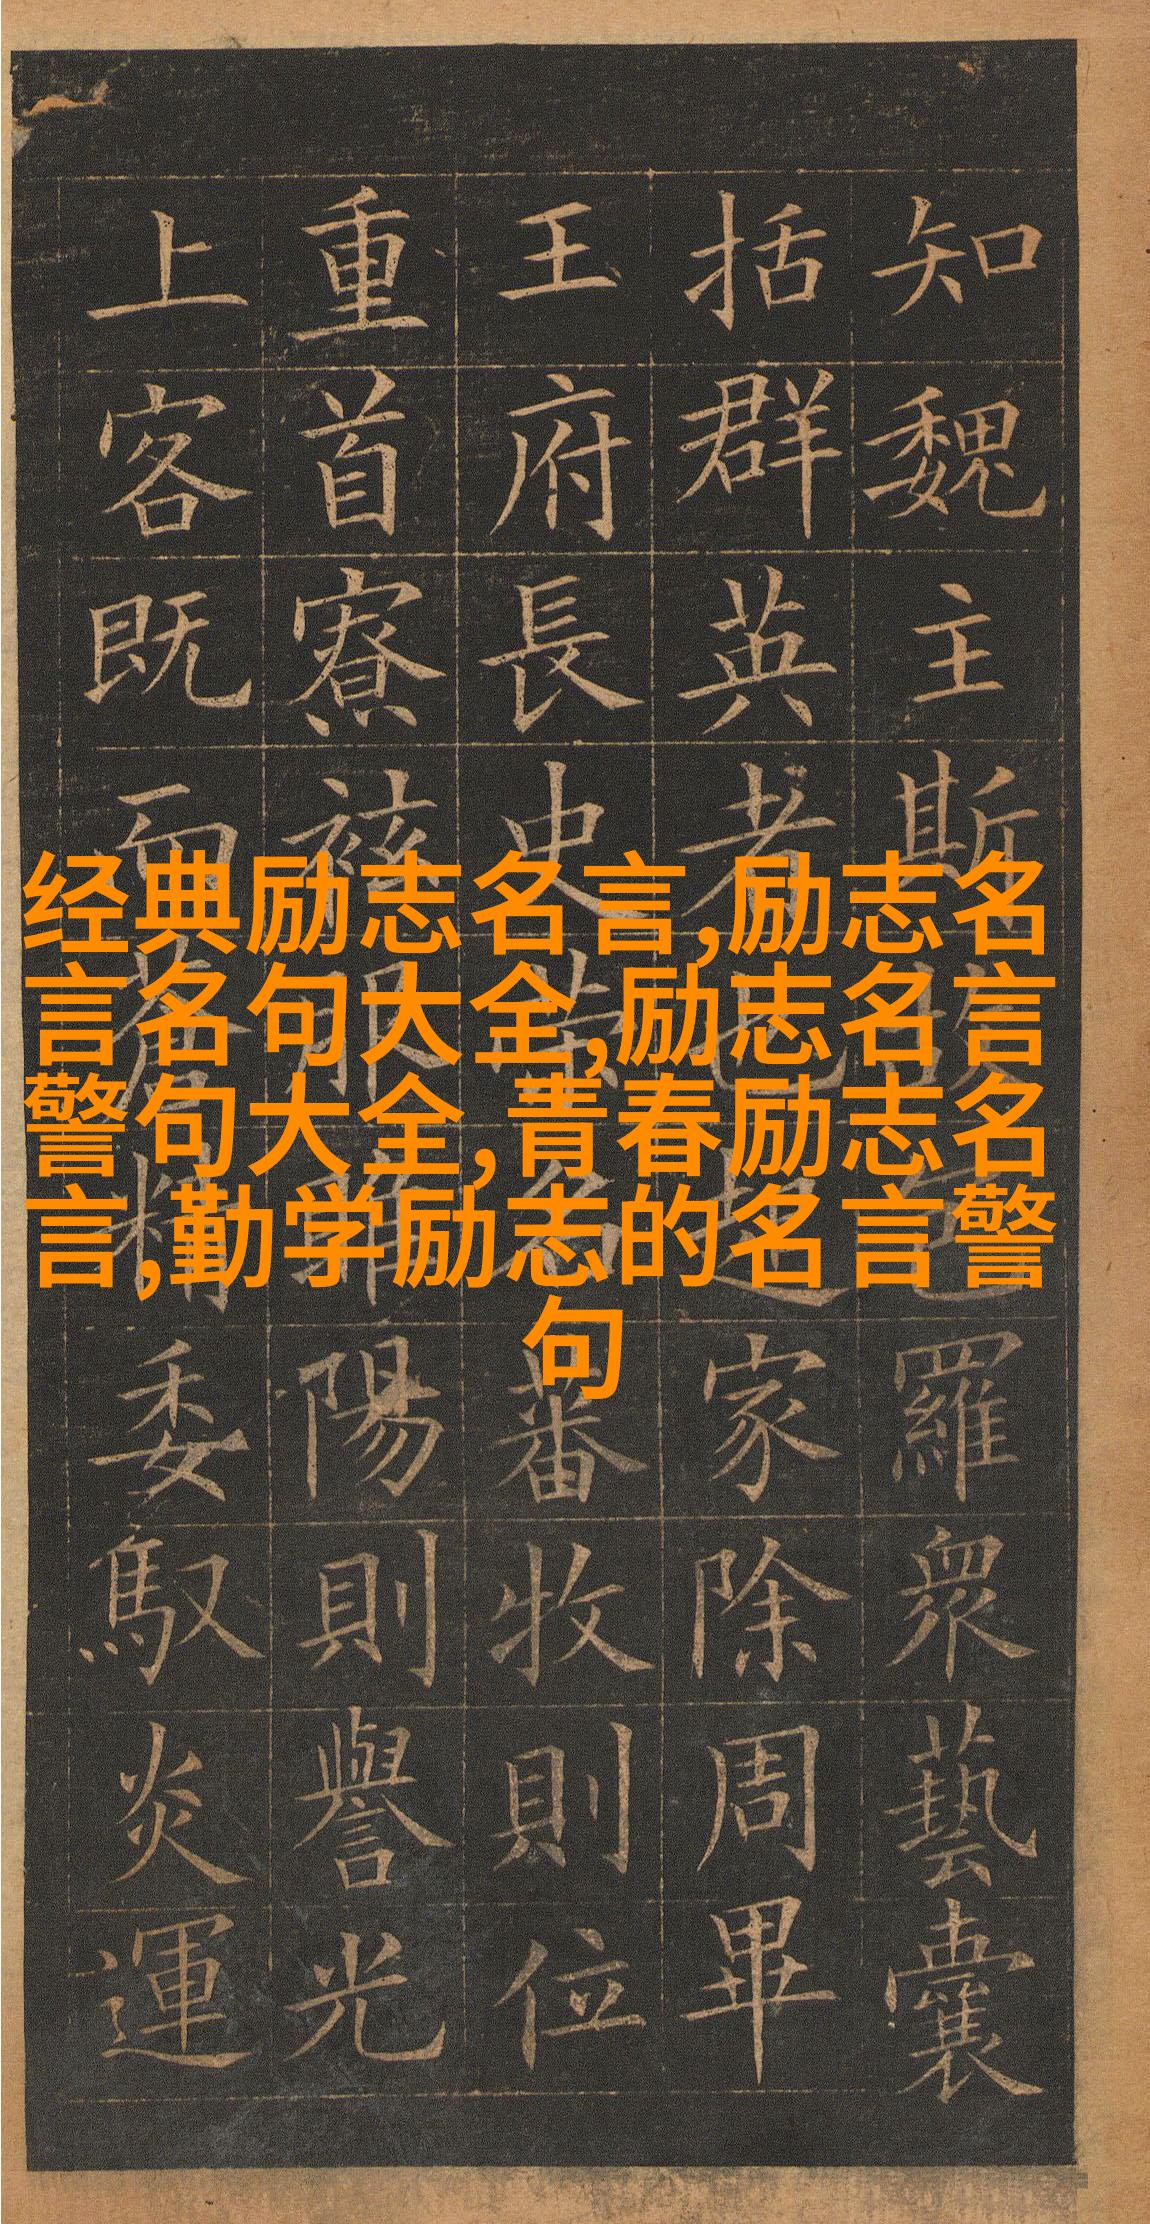 经典励志名言,励志名
言名句大全,励志名言
警句大全,青春励志名
言,勤学励志的名言警
句
知魏主斯故包羅衆藝囊
括群英者也起家除周畢
王府長史榮名蕃牧則位
重首寮袟服睢陽則譽光
上客既而蒼精委馭炎運